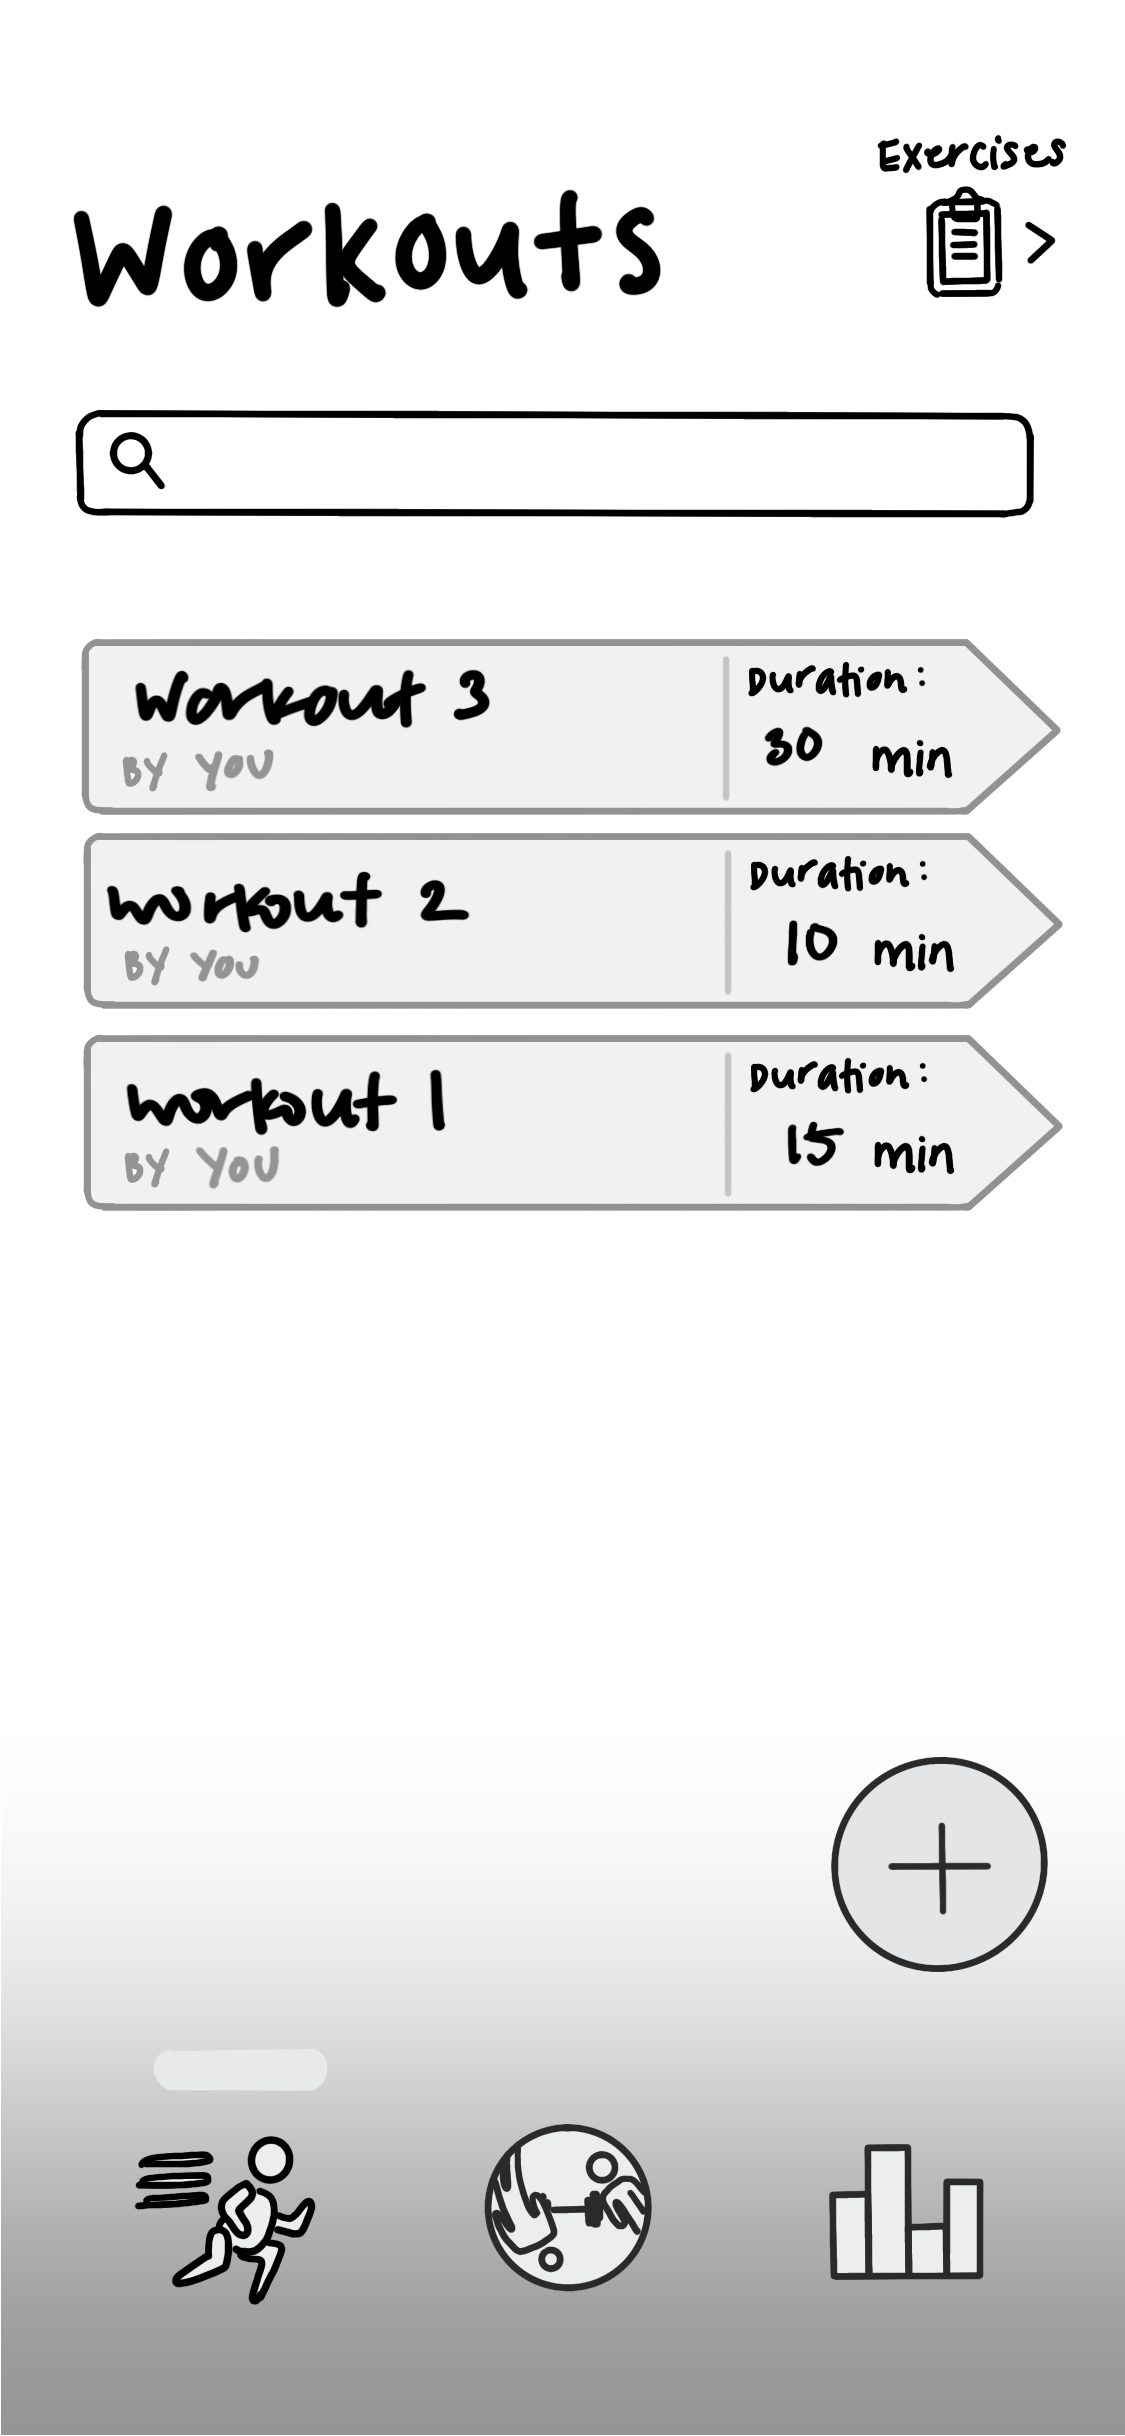 Exercises
Workouts
>
Workout 3
BY YOU
Duration:
30 min
workout 2
BY YOU
Duration:
10 min
workout 1
BY YOU
Duration:
15 min
+